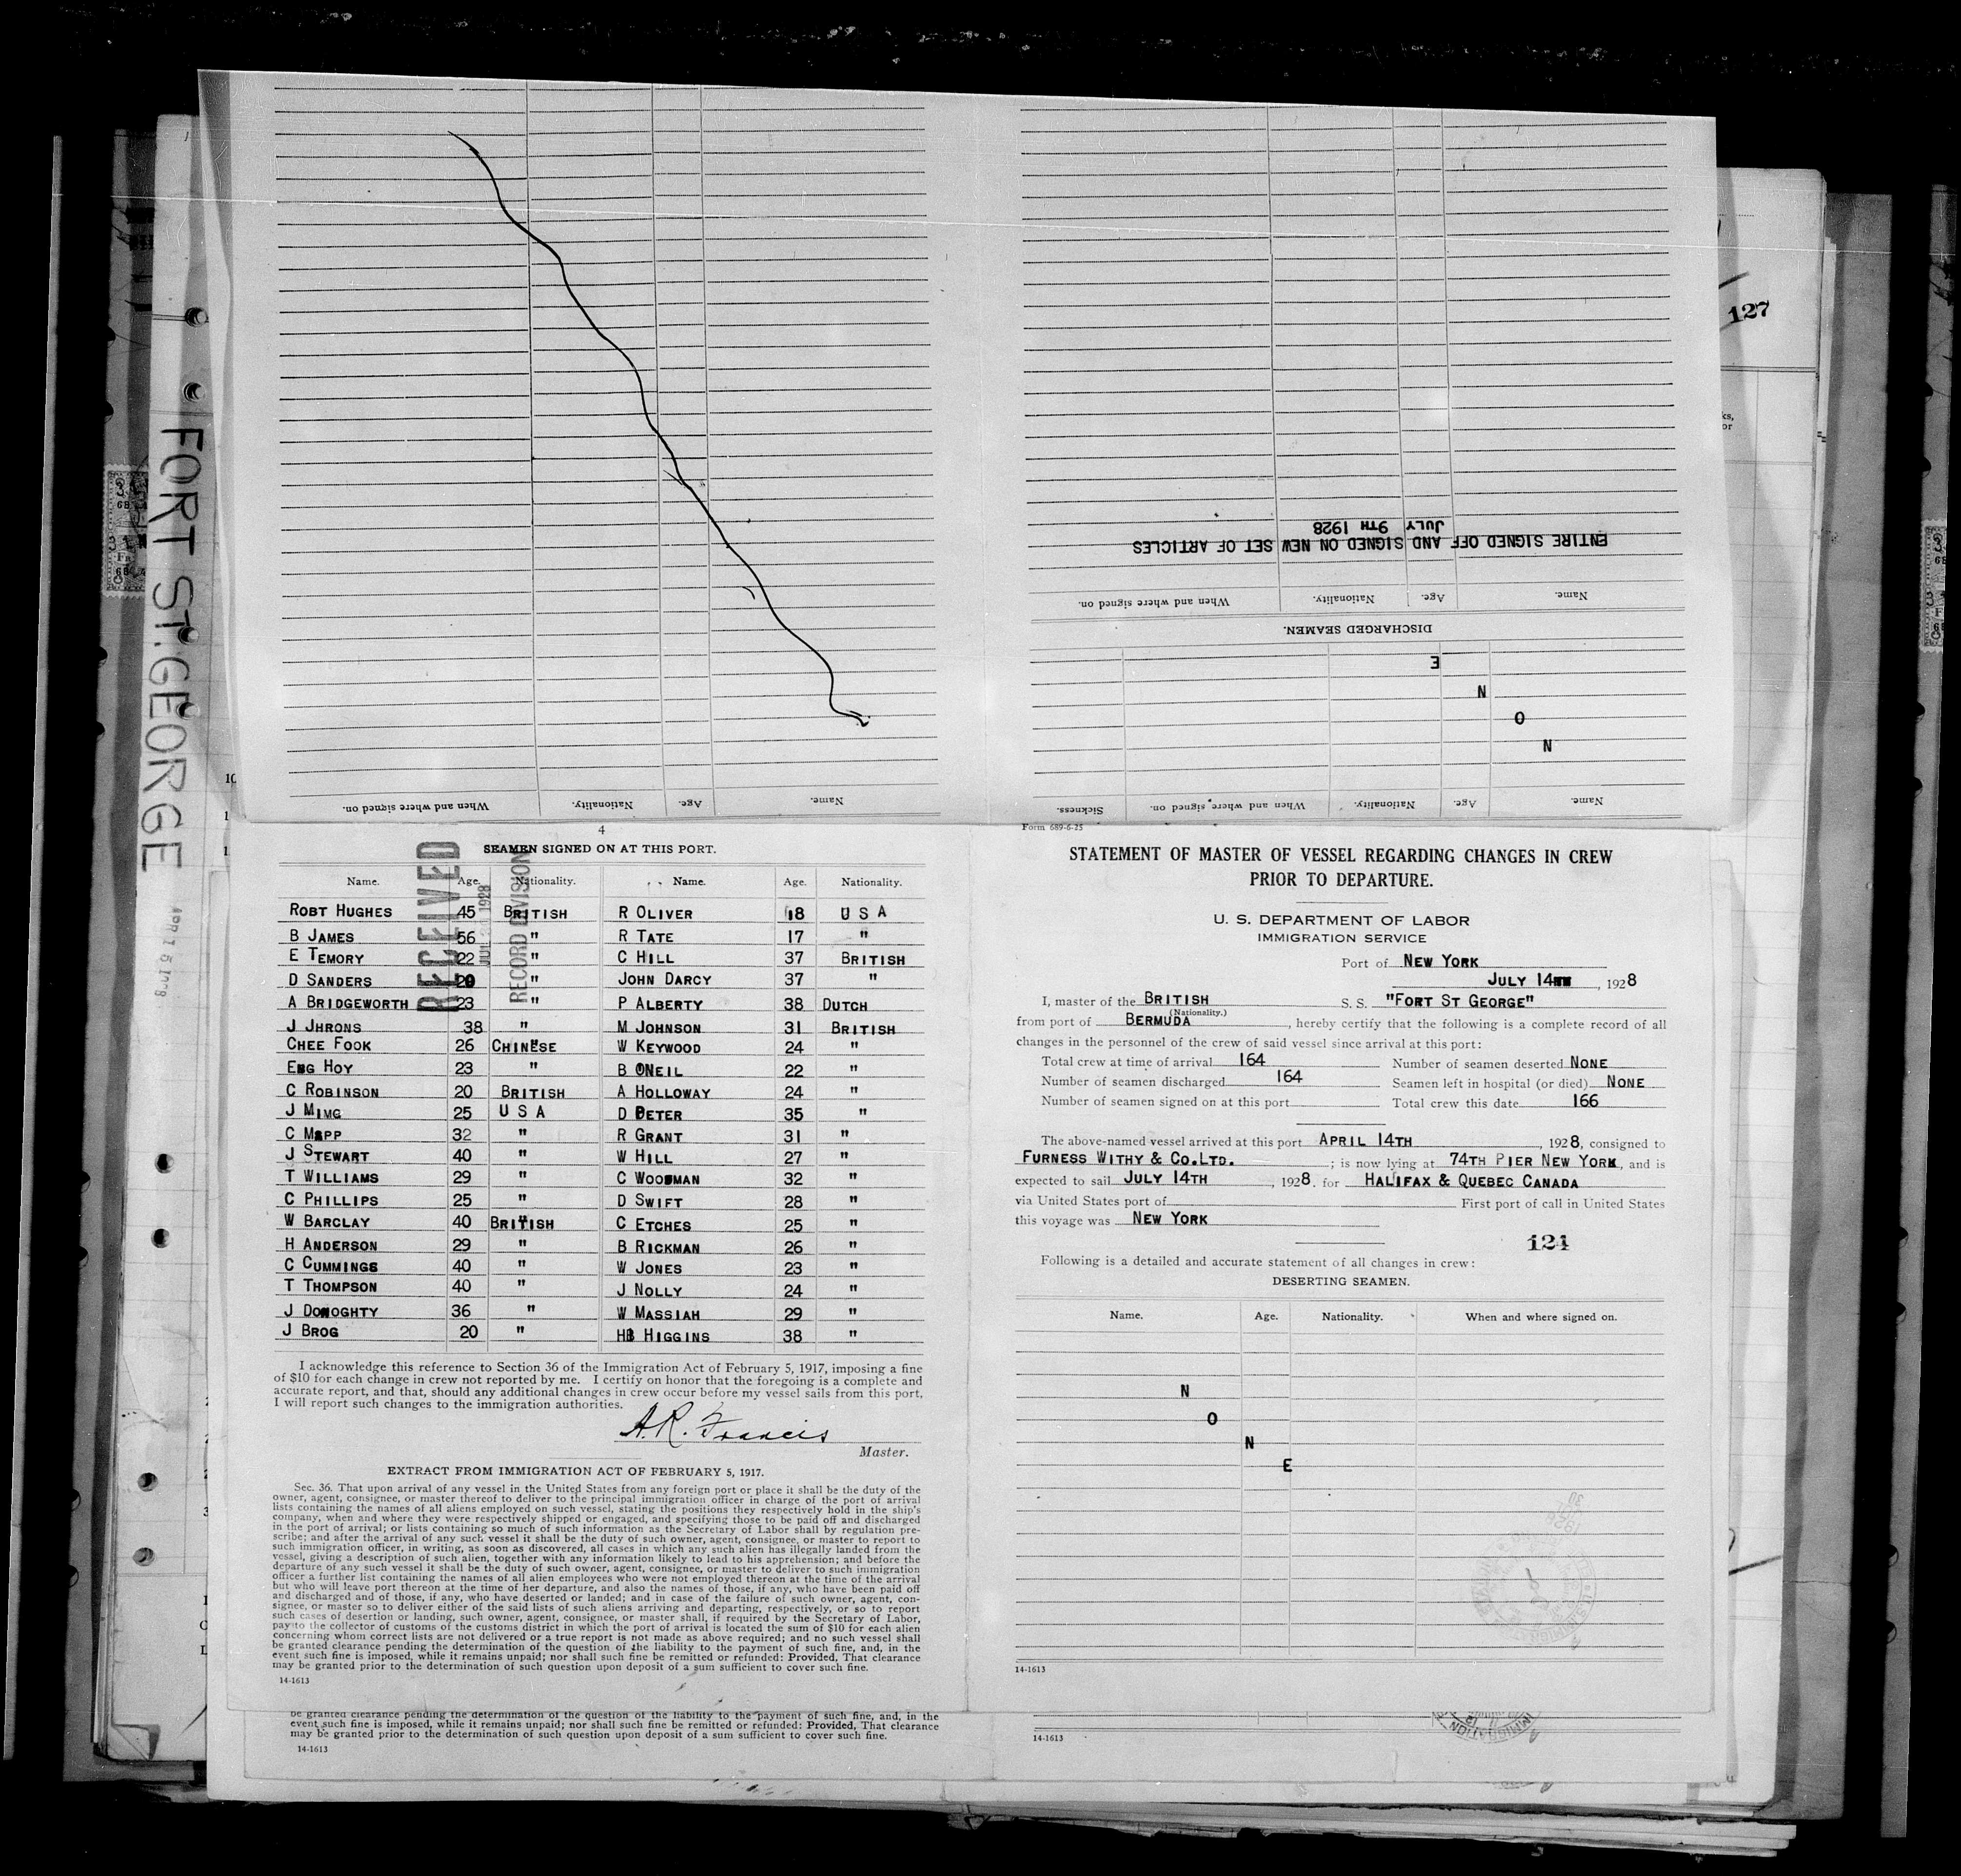 FORT ST. GEORGE
127
ENTIRE SIGNED OFF AND SIGNED ON NEW SET OF ARTICLES
JULY 9TH 1928
Name. Age. Nationality. When and where signed on.
DISCHARGED SEAMEN.
N
O
N
E
Name. Age. Nationality. When and where signed on. Sickness.
Name. Age. Nationality. When and where signed on.
4
SEAMEN SIGNED ON AT THIS PORT.
RECEIVED
1928
RECORD DIVISION
Name. Age. Nationality. Name. Age. Nationality.
ROBT HUGHES 45 BRITISH R OLIVER 18 U S A
B JAMES 56 " R TATE 17 "
E TEMORY 22 " C HILL 37 BRITISH
D SANDERS 20 " JOHN DARCY 37 "
A BRIDGEWORTH 23 " P ALBERTY 38 DUTCH
J JHRONS 38 " M JOHNSON 31 BRITISH
CHEE FOOK 26 CHINESE W KEYWOOD 24 "
ENG HOY 23 " B ONEIL 22 "
C ROBINSON 20 BRITISH A HOLLOWAY 24 "
J MIMG 25 U S A D PETER 35 "
C MAPP 32 " R GRANT 31 "
J STEWART 40 " W HILL 27 "
T WILLIAMS 29 " C WOODMAN 32 "
C PHILLIPS 25 " D SWIFT 28 "
W BARCLAY 40 BRITISH C ETCHES 25 "
H ANDERSON 29 " B RICKMAN 26 "
C CUMMINGS 40 " W JONES 23 "
T THOMPSON 40 " J NOLLY 24 "
J DONOGHTY 36 " W MASSIAH 29 "
J BROG 20 " HB HIGGINS 38 "
I acknowledge this reference to Section 36 of the Immigration Act of February 5, 1917, imposing a fine
of $10 for each change in crew not reported by me. I certify on honor that the foregoing is a complete and
accurate report, and that, should any additional changes in crew occur before my vessel sails from this port,
I will report such changes to the immigration authorities.
A.R. Francis
Master.
EXTRACT FROM IMMIGRATION ACT OF FEBRUARY 5, 1917.
Sec. 36. That upon arrival of any vessel in the United States from any foreign port or place it shall be the duty of the
owner, agent, consignee, or master thereof to deliver to the principal immigration officer in charge of the port of arrival
lists containing the names of all aliens employed on such vessel, stating the positions they respectively hold in the ship's
company, when and where they were respectively shipped or engaged, and specifying those to be paid off and discharged
in the port of arrival; or lists containing so much of such information as the Secretary of Labor shall by regulation pre-
scribe; and after the arrival of any such vessel it shall be the duty of such owner, agent, consignee, or master to report to
such immigration officer, in writing, as soon as discovered, all cases in which any such alien has illegally landed from the
vessel, giving a description of such alien, together with any information likely to lead to his apprehension; and before the
departure of any such vessel it shall be the duty of such owner, agent, consignee, or master to deliver to such immigration
officer a further list containing the names of all alien employees who were not employed thereon at the time of the arrival
but who will leave port thereon at the time of her departure, and also the names of those, if any, who have been paid off
and discharged and of those, if any, who have deserted or landed; and in case of the failure of such owner, agent, con-
signee, or master so to deliver either of the said lists of such aliens arriving and departing, respectively, or so to report
such cases of desertion or landing, such owner, agent, consignee, or master shall, if required by the Secretary of Labor,
pay to the collector of customs of the customs district in which the port of arrival is located the sum of $10 for each alien
concerning whom correct lists are not delivered or a true report is not made as above required; and no such vessel shall
be granted clearance pending the determination of the question of the liability to the payment of such fine, and, in the
event such fine is imposed, while it remains unpaid; nor shall such fine be remitted or refunded: Provided, That clearance
may be granted prior to the determination of such question upon deposit of a sum sufficient to cover such fine.
14-1613
be granted clearance pending the determination of the question of the liability to the payment of such fine, and, in the
event such fine is imposed, while it remains unpaid; nor shall such fine be remitted or refunded: Provided, That clearance
may be granted prior to the determination of such question upon deposit of a sum sufficient to cover such fine.
14-1613
Form 689-6-25
STATEMENT OF MASTER OF VESSEL REGARDING CHANGES IN CREW
PRIOR TO DEPARTURE.
U. S. DEPARTMENT OF LABOR
IMMIGRATION SERVICE
Port of NEW YORK
JULY 14, 1928
I, master of the BRITISH S. S. "FORT ST GEORGE"
(Nationality.)
from port of BERMUDA, hereby certify that the following is a complete record of all
changes in the personnel of the crew of said vessel since arrival at this port:
Total crew at time of arrival 164 Number of seamen deserted NONE
Number of seamen discharged 164 Seamen left in hospital (or died) NONE
Number of seamen signed on at this port Total crew this date 166
The above-named vessel arrived at this port APRIL 14TH, 1928, consigned to
FURNESS WITHY & CO.LTD.; is now lying at 74TH PIER NEW YORK, and is
expected to sail JULY 14TH, 1928, for HALIFAX & QUEBEC CANADA
via United States port of First port of call in United States
this voyage was NEW YORK
121
Following is a detailed and accurate statement of all changes in crew:
DESERTING SEAMEN.
Name. Age. Nationality. When and where signed on.
N
O
N
E
14-1613
14-1613